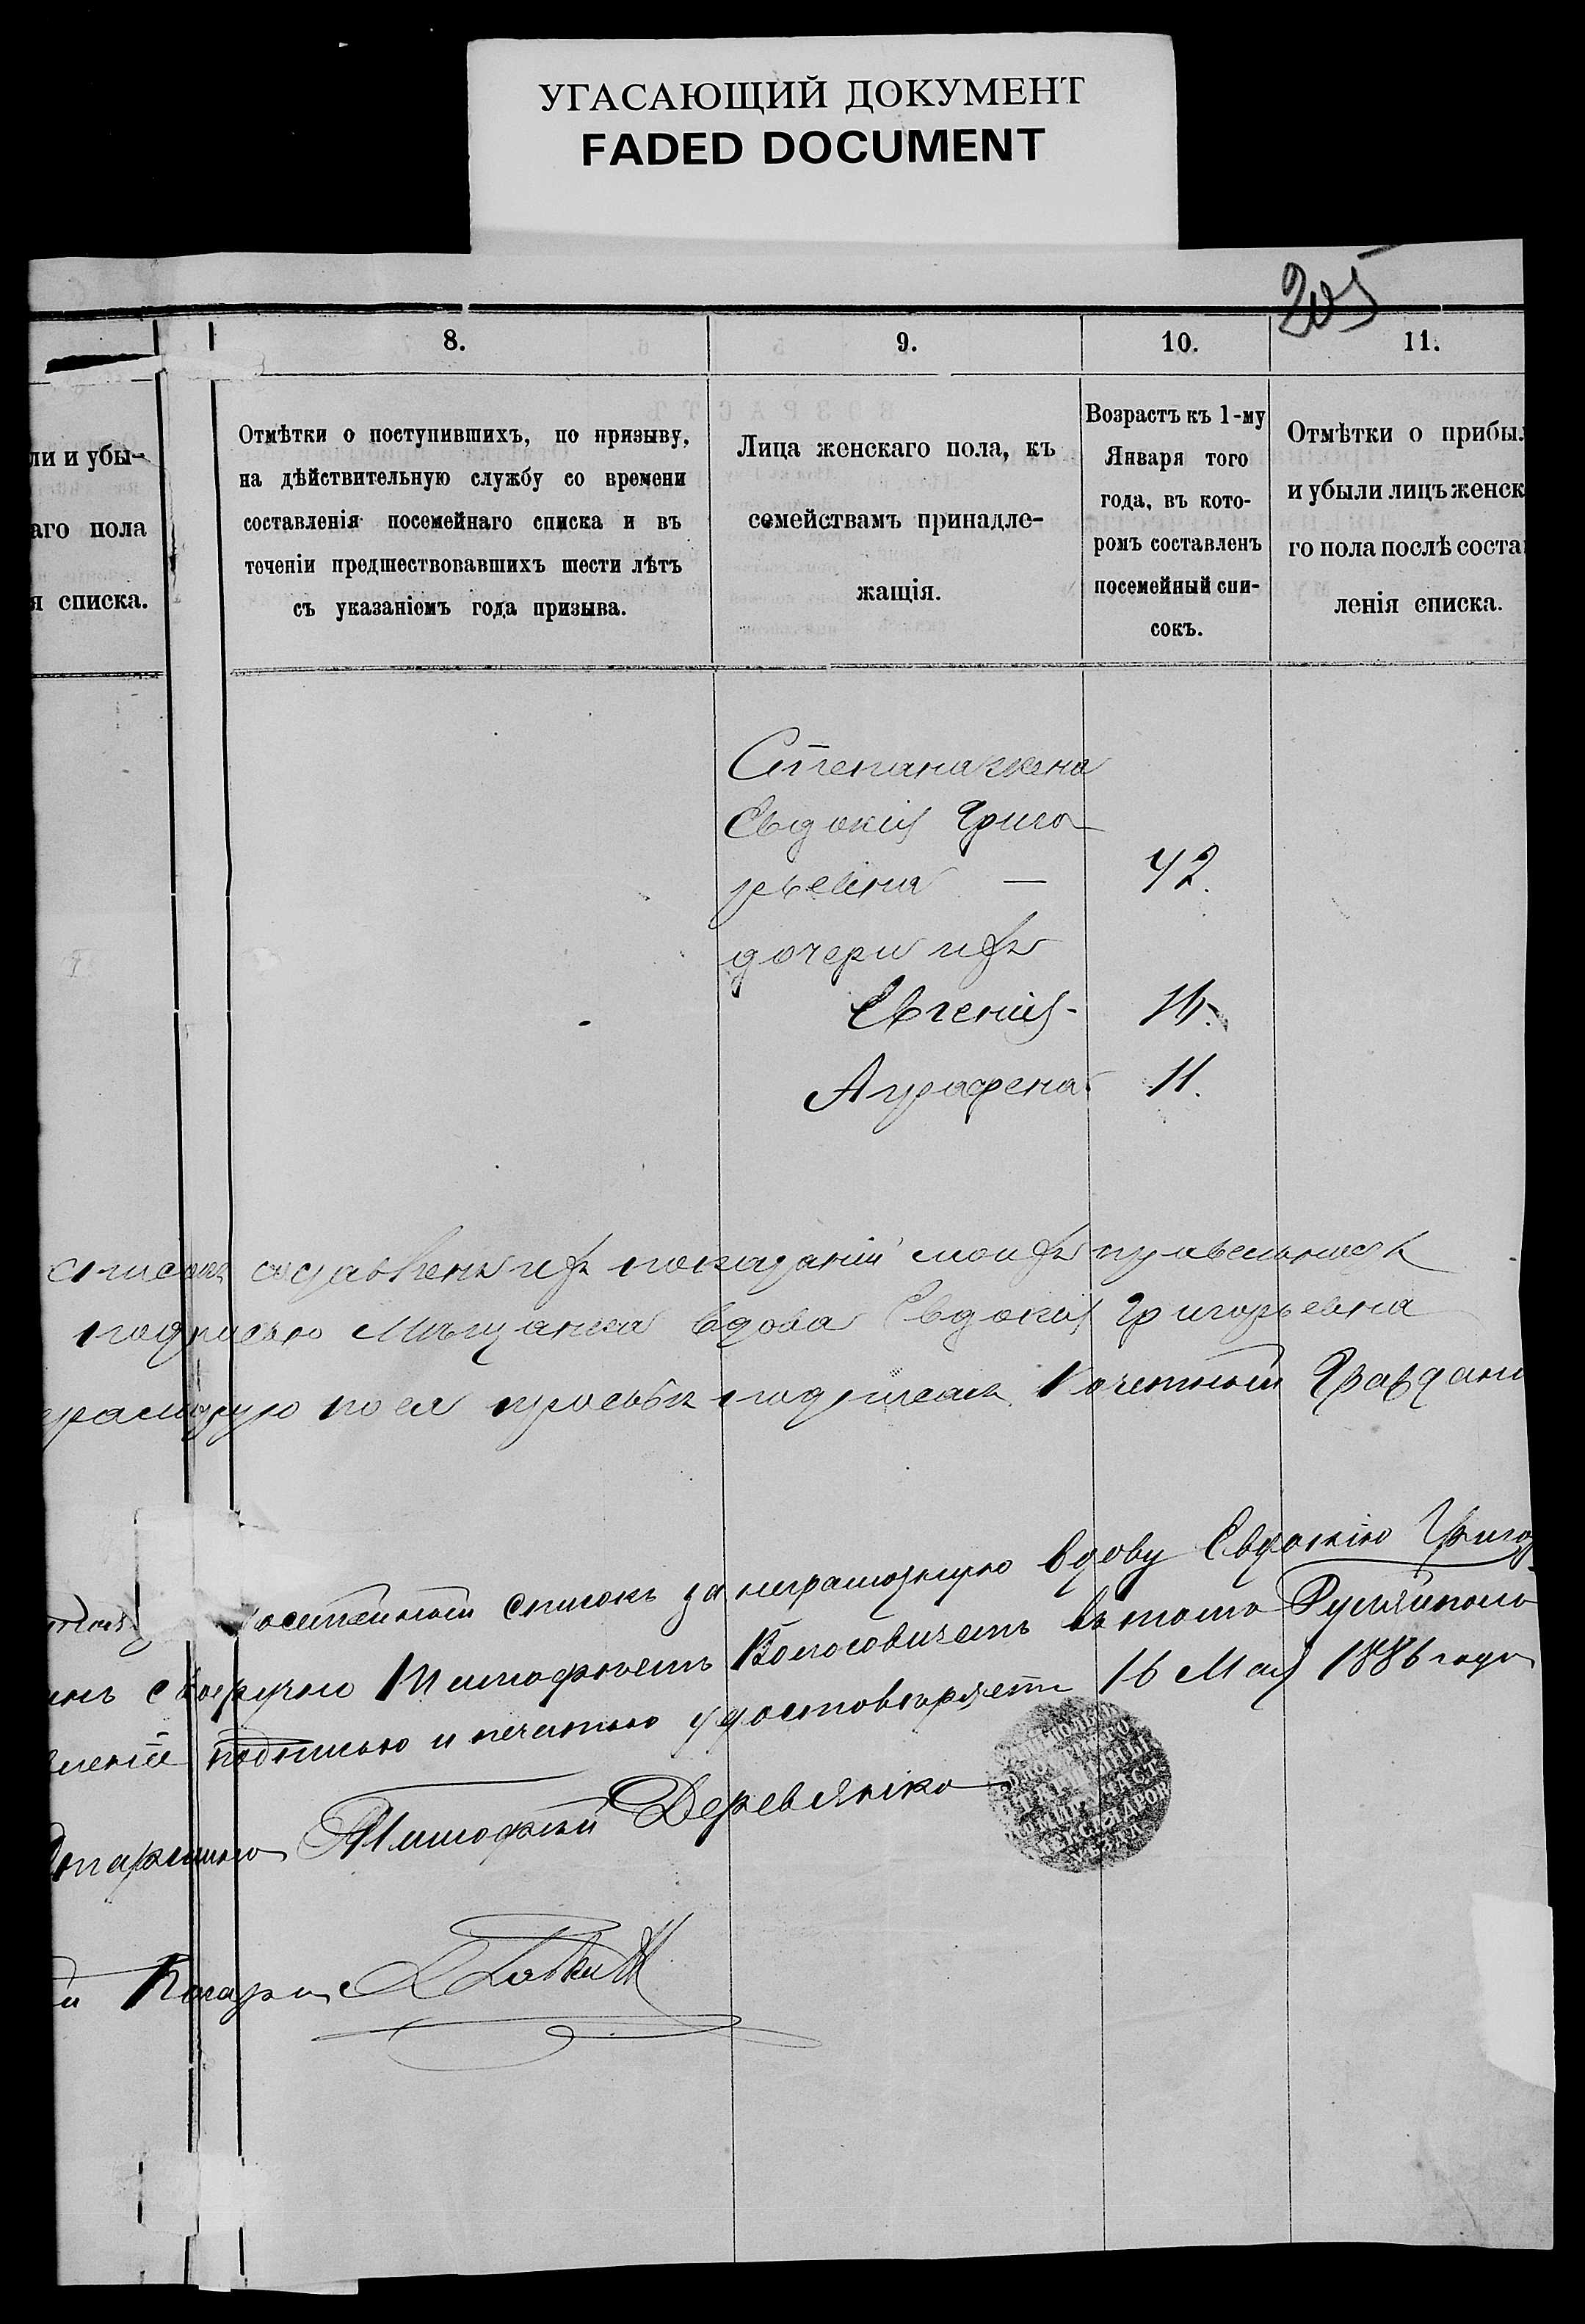 УГАСАЮЩИЙ ДОКУМЕНТ
FADED DOCUMENT
205
8.
9.
10.
11.
ли и убы-
аго пола
я списка.
Отмѣтки о поступившихъ, по призыву,
на дѣйствительную службу со времени
составленія посемейнаго списка и въ
теченіи предшествовавшихъ шести лѣтъ
съ указаніемъ года призыва.
Лица женскаго пола, къ
семействамъ принадле-
жащія.
Возрастъ къ 1-му
Января того
года, въ кото-
ромъ составленъ
посемейный спи-
сокъ.
Отмѣтки о прибыл
и убыли лицъ женск
го пола послѣ соста
ленія списка.
Степана жена
Евдокія Григо
рьевна — 42.
дочери ихъ
Евгенія - 14.
Аграфена 11.
списокъ составленъ изъ показаній моихъ
подписью Мѣщанка вдова Евдокія Григорьевна
по ея просьбѣ подписалъ Почетный Граждани
посемейный списокъ за неграмотную вдову Евдокію Григор
своеручно Тимофѣемъ в томъ
подписью и печатью удостовѣряетъ 16 Мая 1886 года
Тимофей Деревянко
Писарь